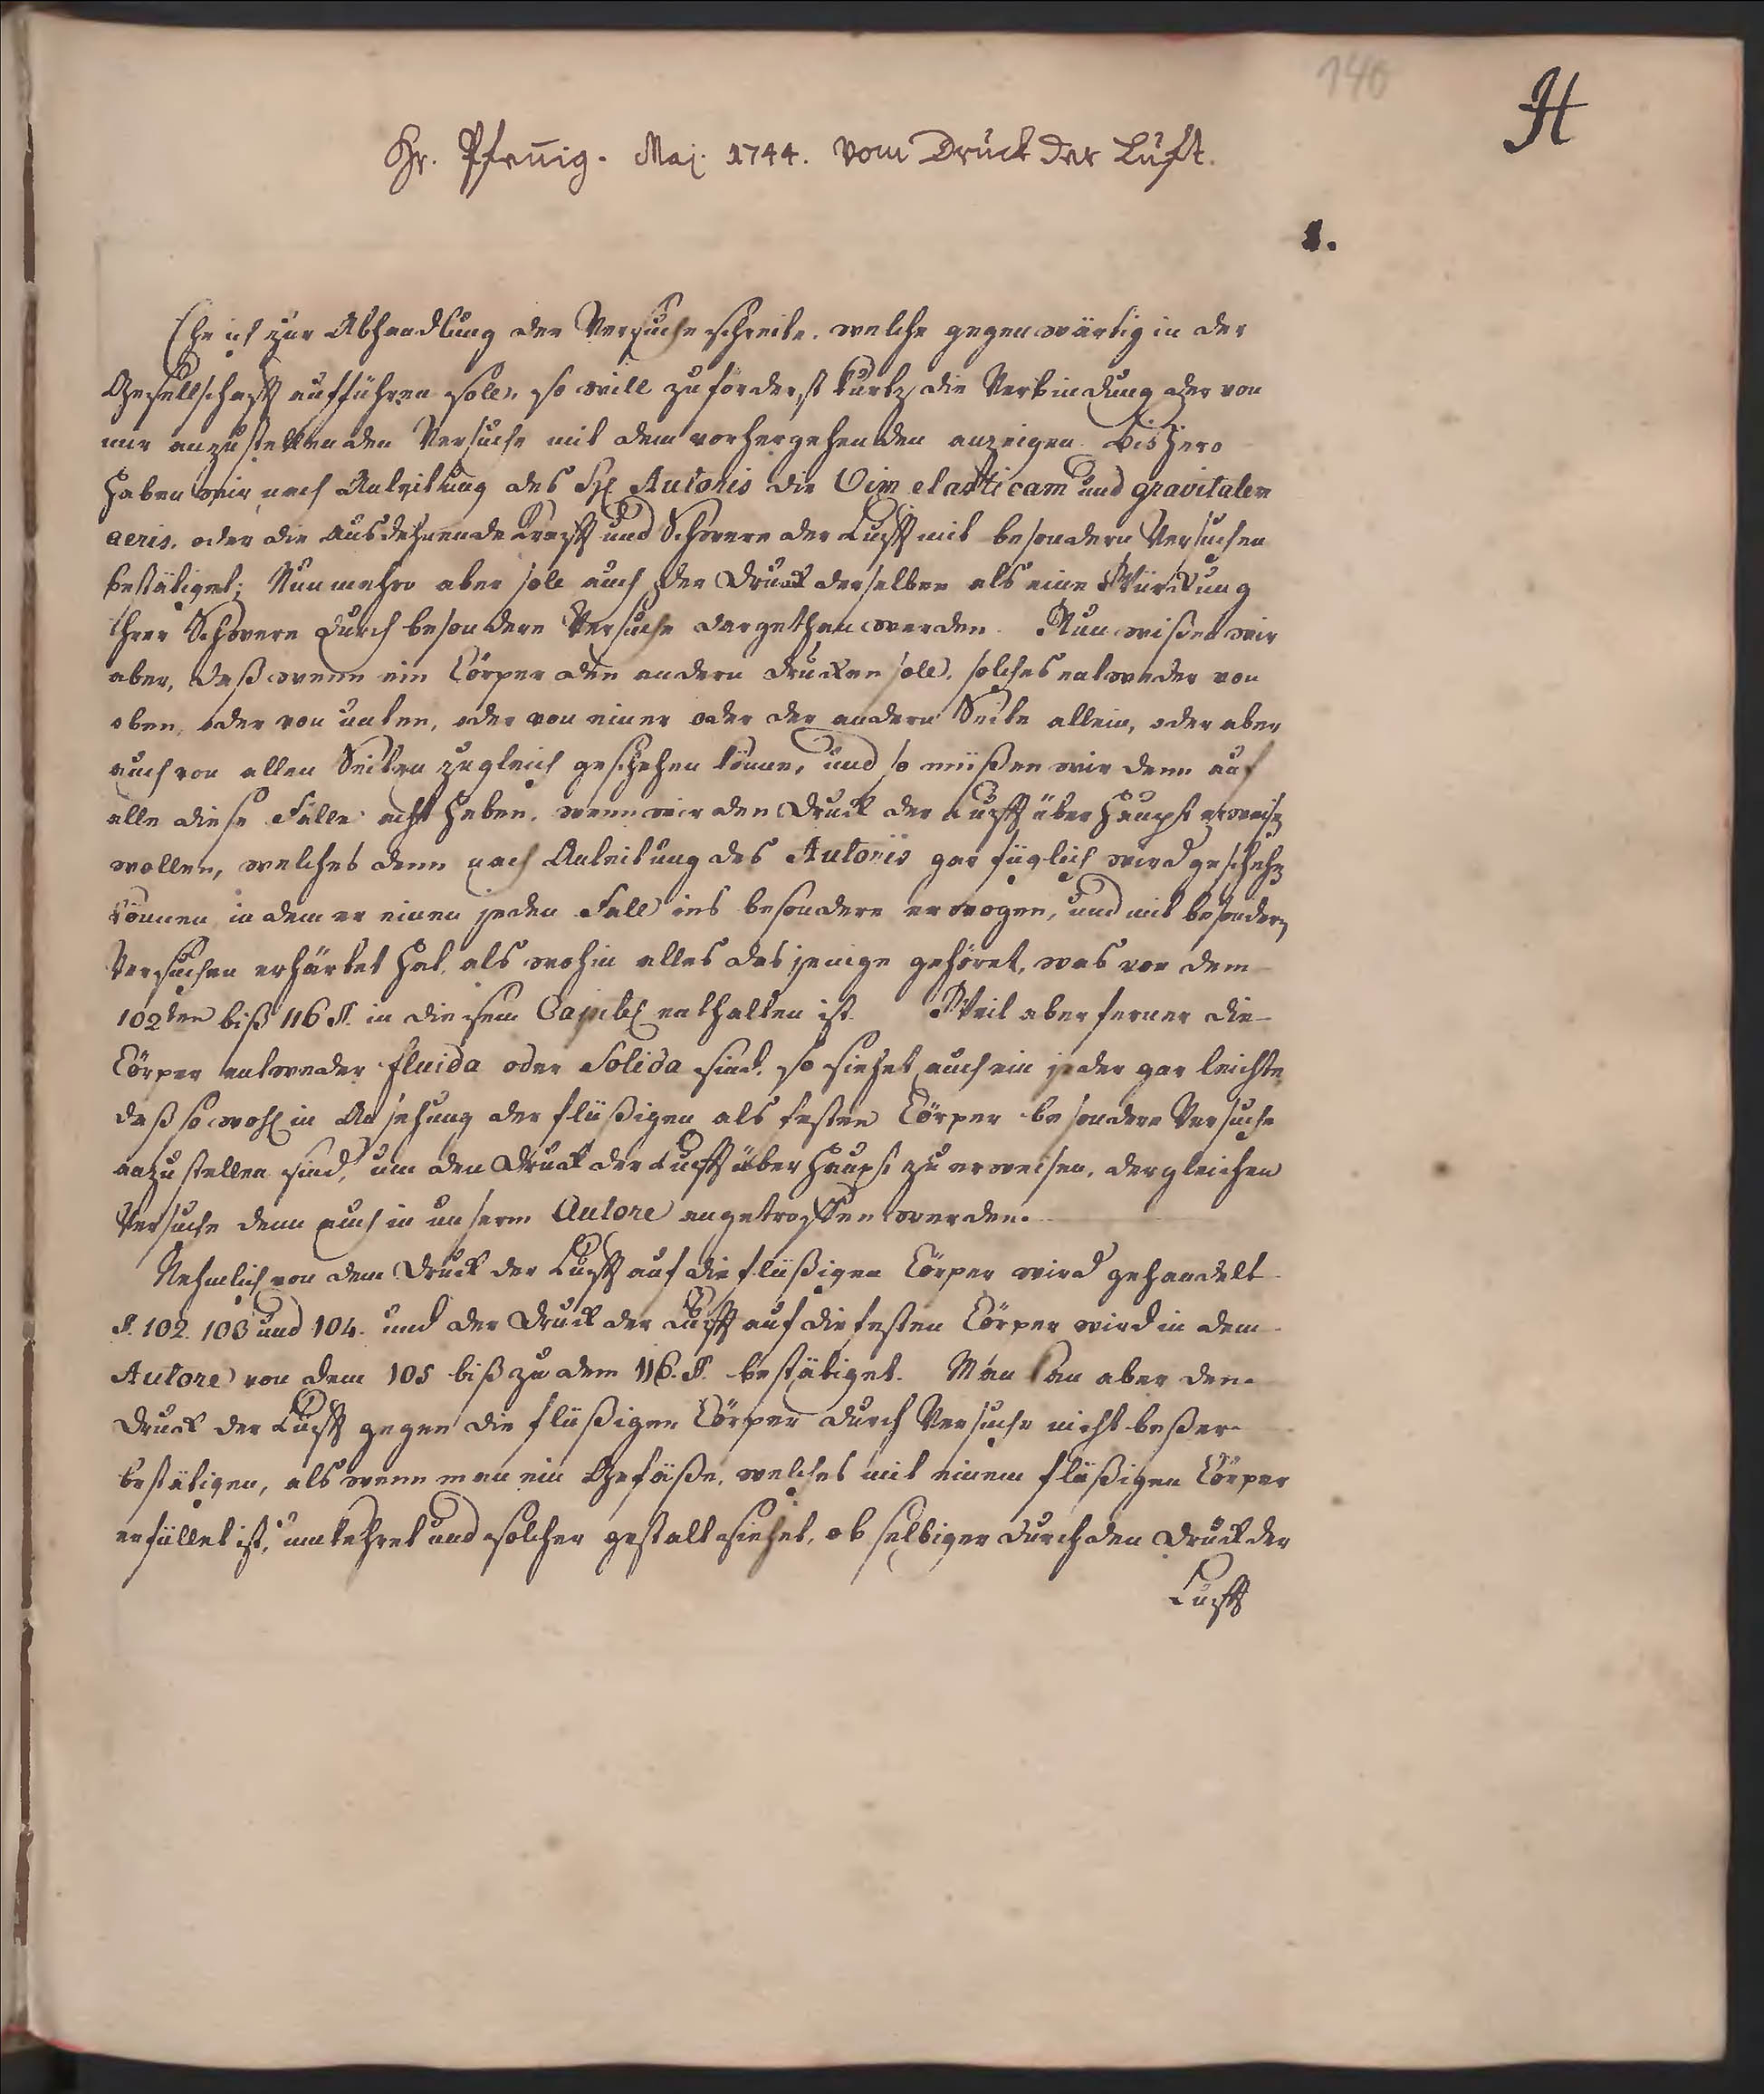 140
H
Hr. Pfennig. Maj. 1744. vom Druck der Luft.
1.
Ehe ich zur Abhandlung der Versuche schreite, welche gegenwärtig in der
Gesellschafft aufführen soll, so will zuförderst kurtz die Verbindung der von
mir anzustellenden Versuche mit dem vorhergehenden anzeigen. Bishero
haben wir nach Anleitung des H. Autoris die Vim elasticam und gravitatem
aeris, oder die ausdehnende Krafft und Schwere der Lufft mit besondern Versuchen
bestätiget; Nunmehro aber soll auch der Druck derselben als eine Würckung
ihrer Schwere durch besondere Versuche dargethan werden. Nun wißen wir
aber, daß wenn ein Cörper den andern drucken soll, solches entweder von
oben, oder von unten, oder von einer oder der andern Seite allein, oder aber
auch von allen Seiten zugleich geschehen könne, und so müßen wir denn auf
alle diese Fälle acht haben, wenn wir den Druck der Lufft überhaupt erweisen
wollen, welches denn nach Anleitung des Autoris gar füglich wird geschehen
können, indem er einen jeden Fall ins besondere erwogen, und mit besondern
Versuchen erhärtet hat, als wohin alles dasjenige gehöret, was von dem
102ten biß 116 §. in diesem Capitel enthalten ist. Weil aber ferner die
Cörper entweder fluida oder Solida sind, so siehet auch ein jeder gar leichte,
daß so wohl in Ansehung der flüßigen als festen Cörper besondere Versuche
anzustellen sind, um den Druck der Lufft überhaupt zu erweisen, dergleichen
Versuche denn auch in unserm Autore angetroffen werden.
Nehmlich von dem Druck der Lufft auf die flüßigen Cörper wird gehandelt
§. 102. 103 und 104. und der Druck der Lufft auf die festen Cörper wird in dem
Autore von dem 105 biß zu dem 116. §. bestätiget. Man kan aber den
Druck der Lufft gegen die flüßigen Cörper durch Versuche nicht beßer
bestätigen, als wenn man ein Gefäße, welches mit einem flüßigen Cörper
erfüllet ist, umkehret und solcher gestalt siehet, ob selbiger durch den Druck der
Lufft